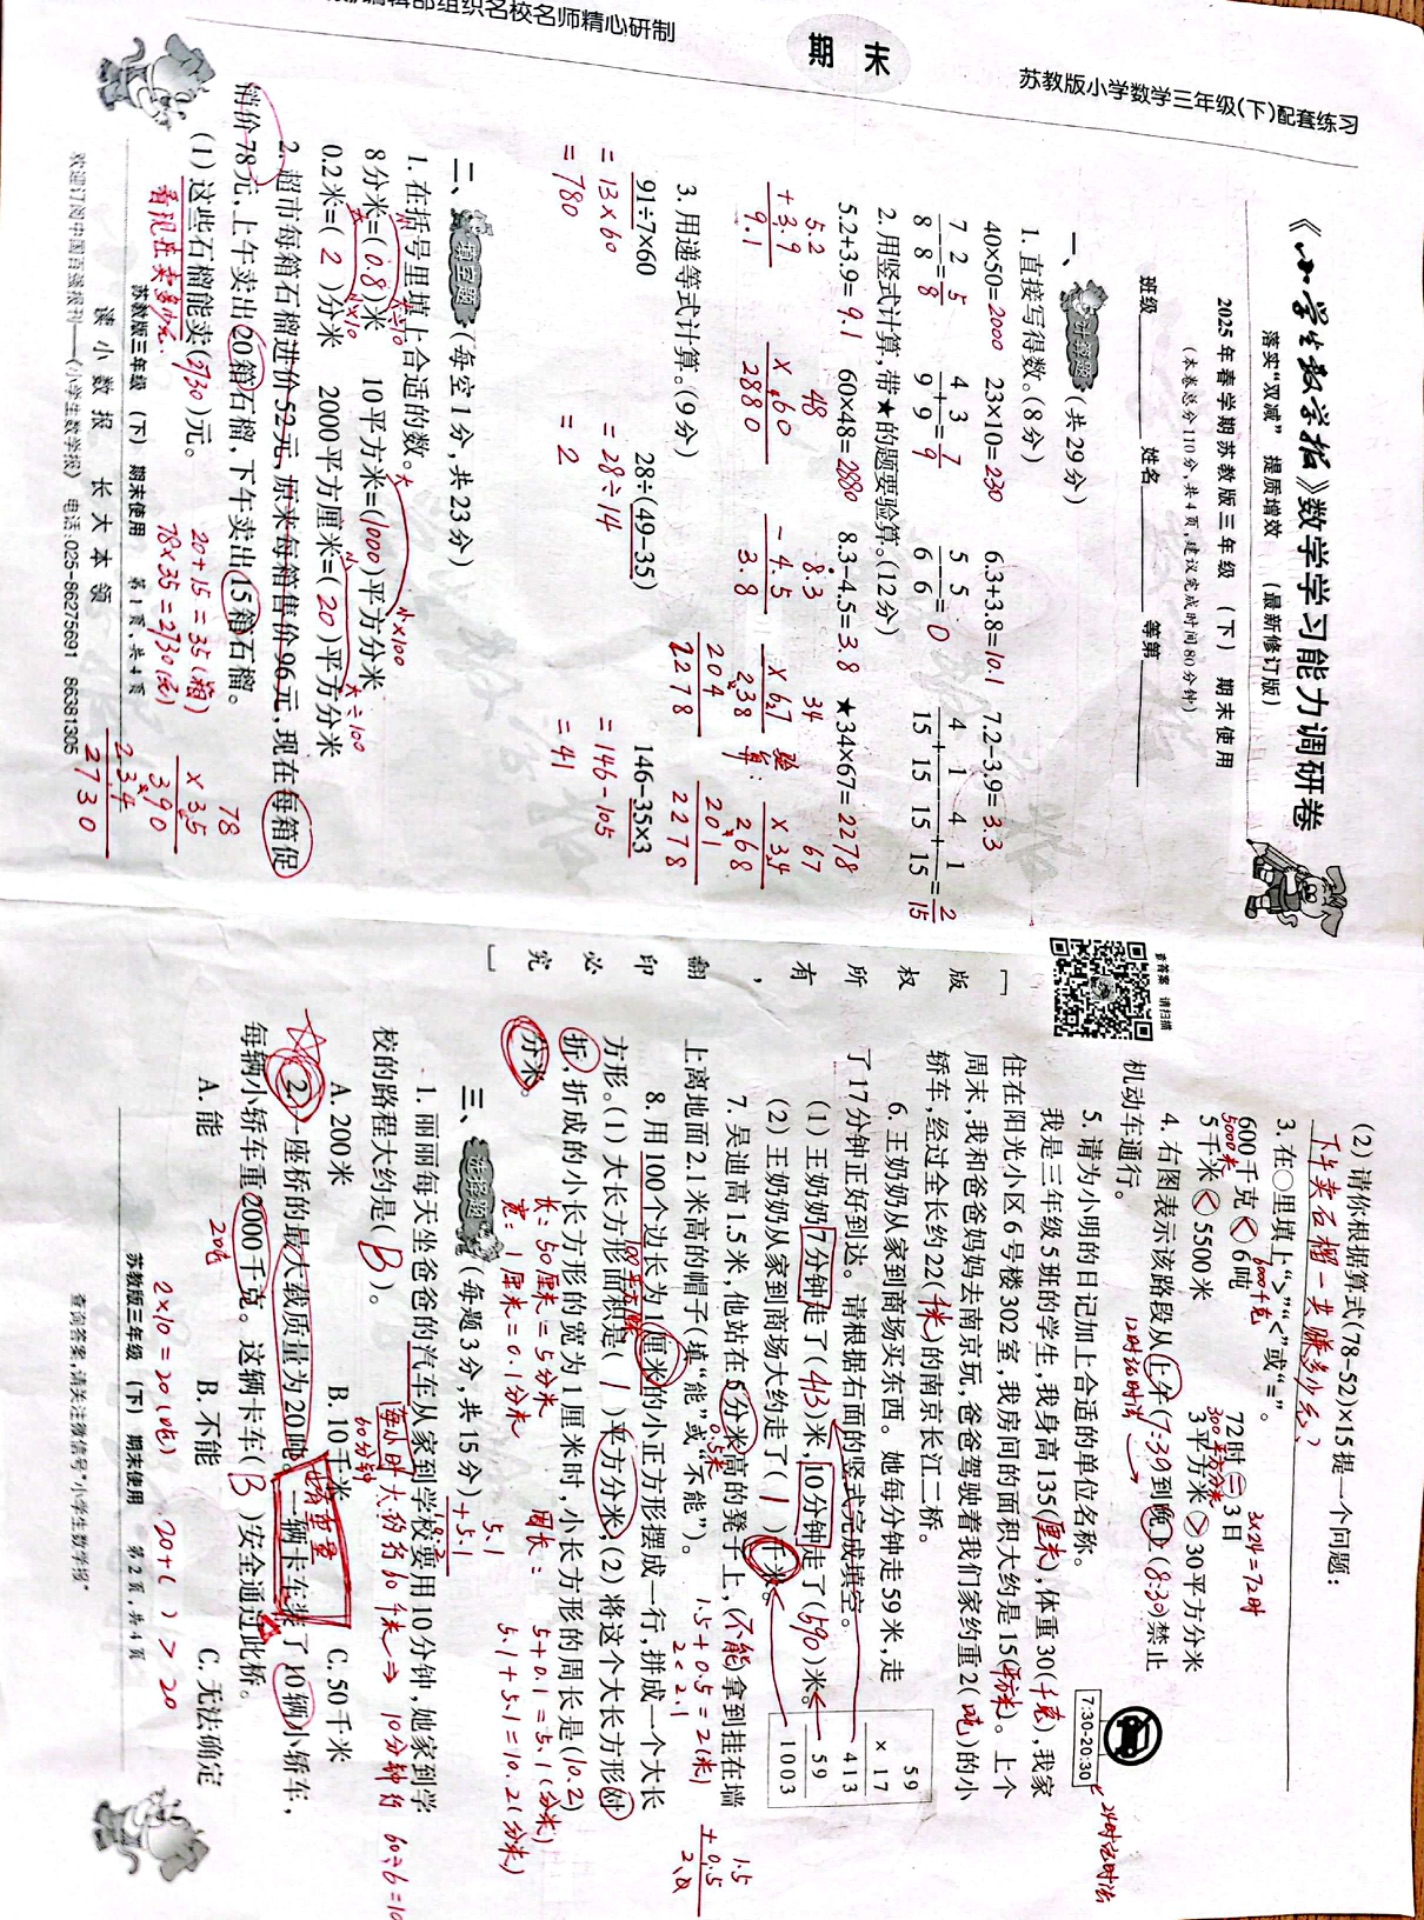 编辑部组织名校名师精心研制
期 末
苏教版小学数学三年级(下)配套练习
《小学生数学报》数学学习能力调研卷
落实“双减” 提质增效 (最新修订版)
2025年春学期苏教版三年级(下) 期末使用
(本卷总分110分,共4页,建议完成时间80分钟)
班级 姓名 等第
一、计算题(共29分)
1. 直接写得数。(8分)
40×50=2000 23×10=230 6.3+3.8=10.1 7.2-3.9=3.3
7/8-2/8=5/8 4/9+3/9=7/9 5/6-5/6=0 4/15+1/15-4/15+1/15=2/15
2. 用竖式计算,带★的题要验算。(12分)
5.2+3.9=9.1 60×48=2880 8.3-4.5=3.8 ★34×67=2278
5.2 48 8.3 34 验算: 67
+3.9 ×60 -4.5 ×67 ×34
9.1 2880 3.8 238 268
204 201
2278 2278
3. 用递等式计算。(9分)
91÷7×60 28÷(49-35) 146-35×3
=13×60 =28÷14 =146-105
=780 =2 =41
二、填空题(每空1分,共23分)
1. 在括号里填上合适的数。
8分米=(0.8)米 10平方米=(1000)平方分米
0.2米=(2)分米 2000平方厘米=(20)平方分米
小 大÷10 大 小×100
大 小×10 小 大÷100
2. 超市每箱石榴进价52元,原来每箱售价96元,现在每箱促
销价78元,上午卖出20箱石榴,下午卖出15箱石榴。
(1) 这些石榴能卖(2730)元。
看现在卖多少元.
20+15=35(箱)
78×35=2730(元)
78
×35
390
234
2730
苏教版三年级(下) 期末使用 第1页,共4页
读小数报 长大本领
欢迎订阅中国百强报刊——《小学生数学报》 电话:025-86275691 86381305
查答案 请扫描
[版权所有,翻印必究]
(2) 请你根据算式(78-52)×15提一个问题:
下午卖石榴一共赚多少元?
3. 在○里填上“>”“<”或“=”。
600千克<6吨 72时=3日
6000千克 3×24=72时
5千米<5500米 3平方米>30平方分米
5000米 300平方分米
4. 右图表示该路段从上午(7:30)到晚上(8:30)禁止
机动车通行。
12时记时法
7:30-20:30
24时记时法
5. 请为小明的日记加上合适的单位名称。
我是三年级5班的学生,我身高135(厘米),体重30(千克),我家
住在阳光小区6号楼302室,我房间的面积大约是15(平方米)。上个
周末,我和爸爸妈妈去南京玩,爸爸驾驶着我们家约重2(吨)的小
轿车,经过全长约22(千米)的南京长江二桥。
6. 王奶奶从家到商场买东西。她每分钟走59米,走
了17分钟正好到达。请根据右面的竖式完成填空。
(1) 王奶奶7分钟走了(413)米,10分钟走了(590)米。
(2) 王奶奶从家到商场大约走了(1)千米。
59
×17
413
59
1003
7. 吴迪高1.5米,他站在5分米高的凳子上,(不能)拿到挂在墙
上离地面2.1米高的帽子(填“能”或“不能”)。
0.5米
1.5+0.5=2(米)
2<2.1
1.5
+0.5
2.0
8. 用100个边长为1厘米的小正方形摆成一行,拼成一个大长
方形。(1) 大长方形面积是(1)平方分米;(2) 将这个大长方形对
折,折成的小长方形的宽为1厘米时,小长方形的周长是(10.2)
分米。
100平方厘米
长:50厘米=5分米
宽:1厘米=0.1分米
周长:5+0.1=5.1(分米)
5.1+5.1=10.2(分米)
5.1
+5.1
10.2
三、选择题(每题3分,共15分)
1. 丽丽每天坐爸爸的汽车从家到学校要用10分钟,她家到学
校的路程大约是(B)。
每小时大约行60千米⇒10分钟约60÷6=10
60分钟
A. 200米 B. 10千米 C. 50千米
2. 一座桥的最大载质量为20吨,一辆卡车装了10辆小轿车,
每辆小轿车重2000千克。这辆卡车(B)安全通过此桥。
有重量
A. 能 B. 不能 C. 无法确定
2×10=20(吨) 20+( )>20
苏教版三年级(下) 期末使用 第2页,共4页
查询答案,请关注微信号“小学生数学报”